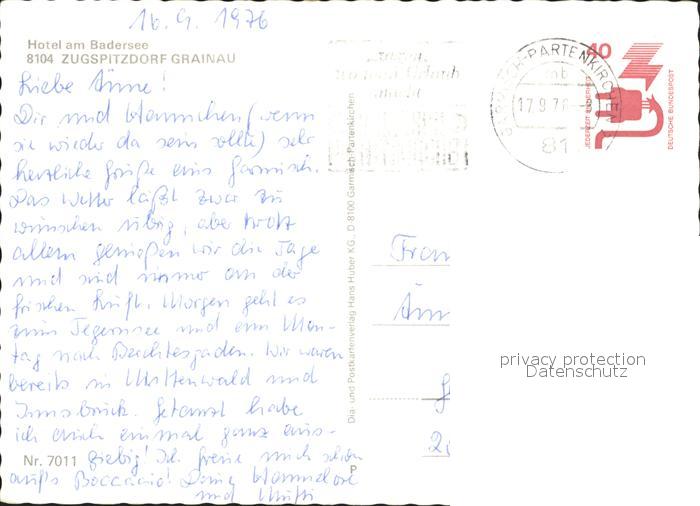 16. 9. 1976
Hotel am Badersee
8104 ZUGSPITZDORF GRAINAU
Liebe Änne!
Dir und Hannchen (wenn
sie wieder da sein sollte) sehr
herzliche Grüße aus Garmisch.
Das Wetter läßt zwar zu
wünschen übrig, aber trotz
allem genießen wir die Tage
und sind immer an der
frischen Luft. Morgen geht es
zum Tegernsee und am Mon-
tag nach Berchtesgaden. Wir waren
bereits in Mittenwald und
Innsbruck. Getanzt habe
ich auch einmal ganz aus-
giebig! Ich freue mich schon
aufs Boccacio! Deine Hannelore
und Mutti
Nr. 7011
Dia- und Postkartenverlag Hans Huber KG., D 8100 Garmisch-Partenkirchen
P
Urlaub
macht
GARMISCH-PARTENKIRCHEN
mb
17.9.76
81
40
JEDERZEIT SICHERHEIT
DEUTSCHE BUNDESPOST
Frau
Änn
2
privacy protection
Datenschutz